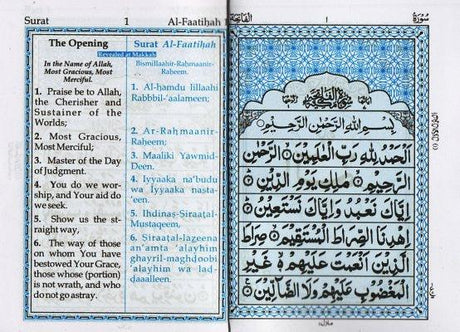 Surat 1 Al-Faatihah 1
The Opening
Revealed at Makkah
In the Name of Allah,
Most Gracious, Most
Merciful.
1. Praise be to Allah,
the Cherisher and
Sustainer of the
Worlds;
2. Most Gracious,
Most Merciful;
3. Master of the Day
of Judgment.
4. You do we wor-
ship, and Your aid do
we seek.
5. Show us the st-
raight way,
6. The way of those
on whom You have
bestowed Your Grace,
those whose (portion)
is not wrath, and who
do not go astray.
Surat Al-Faatiḥah
Bismillaahir-Raḥmaanir-
Raheem.
1. Al-ḥamdu lillaahi
Rabbil-'aalameen;
2. Ar-Raḥmaanir-
Raheem;
3. Maaliki Yawmid-
Deen.
4. Iyyaaka na'budu
wa Iyyaaka nasta-
'een.
5. Ihdinaṣ-Ṣiraaṭal-
Mustaqeem,
6. Ṣiraaṭal-lazeena
an'amta 'alayhim
ghayril-maghdoobi
'alayhim wa lad-
daaalleen.
الفاتحة ١ سورة
بِسْمِ اللهِ الرَّحْمٰنِ الرَّحِيْمِ
اَلْحَمْدُ لِلّٰهِ رَبِّ الْعٰلَمِيْنَ الرَّحْمٰنِ
الرَّحِيْمِ مٰلِكِ يَوْمِ الدِّيْنِ
اِيَّاكَ نَعْبُدُ وَاِيَّاكَ نَسْتَعِيْنُ
اِهْدِنَا الصِّرَاطَ الْمُسْتَقِيْمَ صِرَاطَ
الَّذِيْنَ اَنْعَمْتَ عَلَيْهِمْ غَيْرِ
الْمَغْضُوْبِ عَلَيْهِمْ وَلَا الضَّآلِّيْنَ